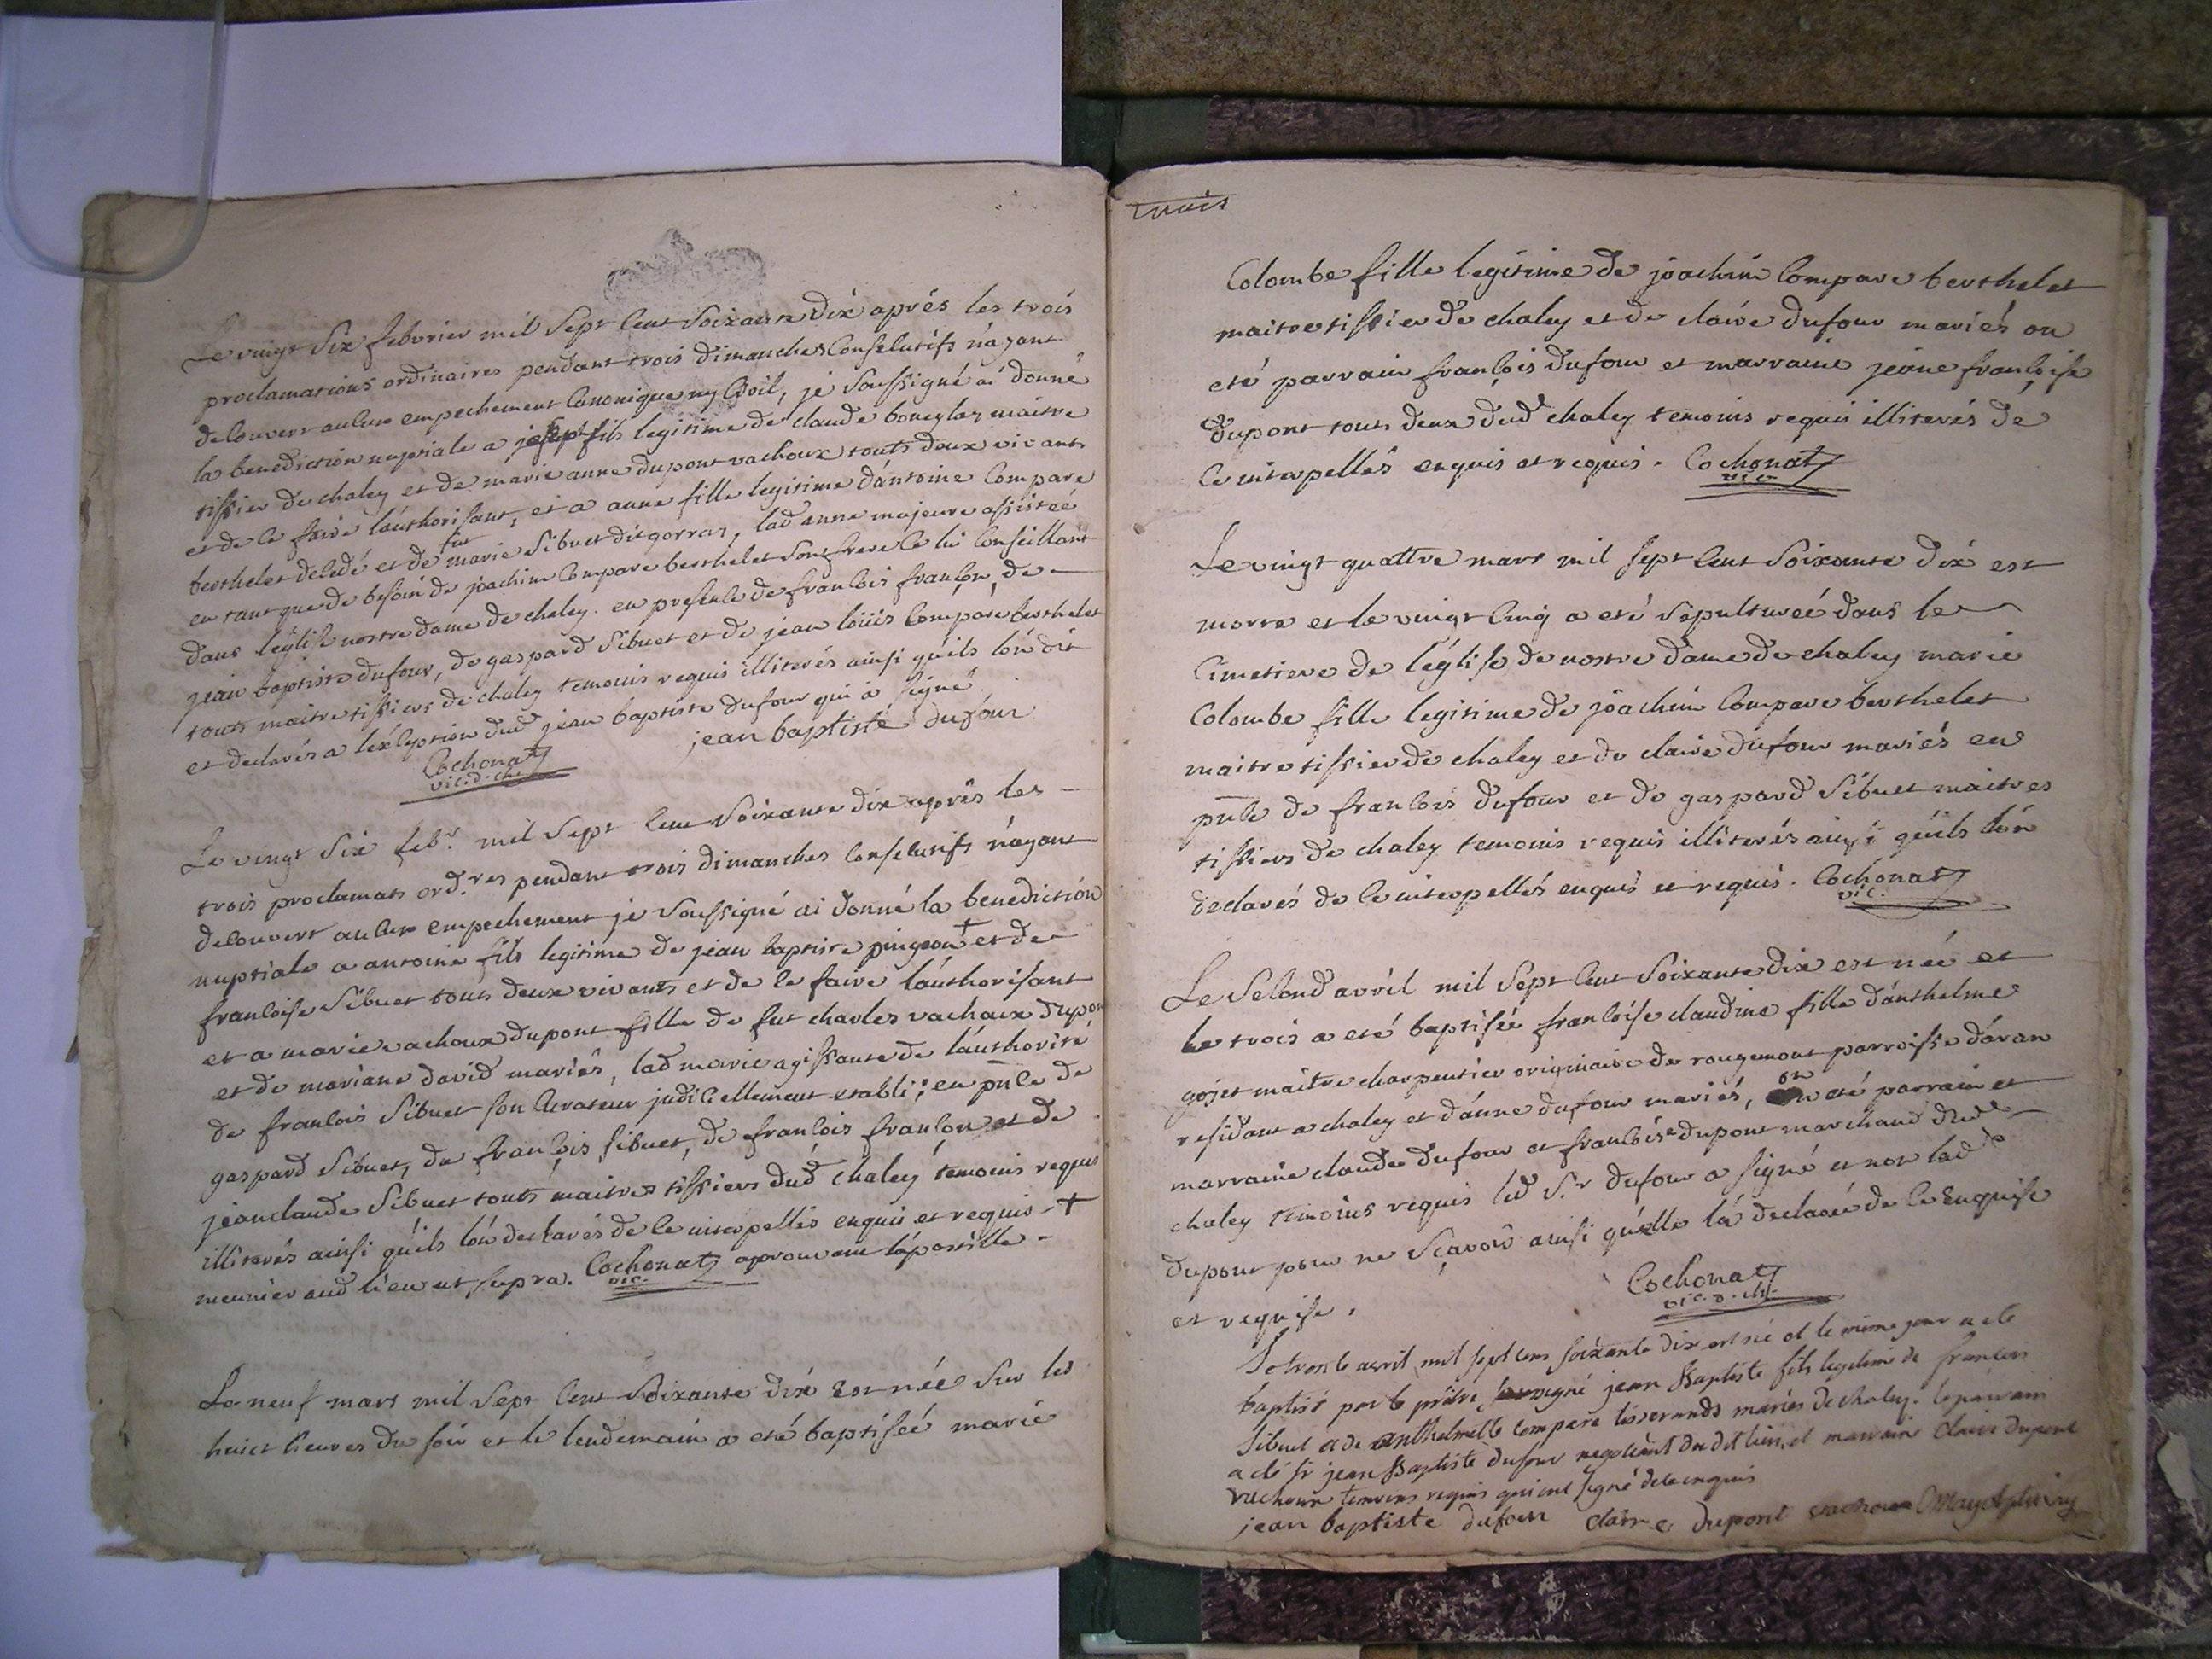 Le vingt Six febvrier mil Sept Cent Soixante Dix aprés les trois
proclamations ordinaires pendant trois dimanches Consecutifs n'ayant
decouvert aucun empechement Canonique ny Civil, je Soussigné ai donné
la benediction nuptiale a joseph fils legitime de claude boueylaz maitre
tissier de chaley et de marie anne dupont vachoux touts deux vivants
et de ce faire l'authorisant, et a anne fille legitime d'antoine Compare
berthelet decedé et de fut marie Sibuet dit gorraz, lad anne majeure assistée
en tant que de besoin de joachim Compare berthelet Son frere ce lui Conseillant
dans l'église nostre dame de chaley. en presence de francois françon, de
jean baptiste dufour, de gaspard Sibuet et de jean loüis Compare berthelet
touts maitre tissiers de chaley temoins requis illiterés ainsi quils l'on dit
et declarés a lexception dud jean baptiste dufour qui a signé.
Cochonat jean baptiste dufour
vic. d. ch.
Le vingt Six feb.r mil Sept Cent Soixante dix aprés les
trois proclamats ord.res pendant trois dimanches Consecutifs n'ayant
decouvert aucun empechement je Soussigné ai donné la benediction
nuptiale a antoine fils legitime de jean baptiste pingeon + et de
francoise Sibuet touts deux vivants et de ce faire l'authorisant
et a marie vachoux dupont fille de fut charles vachoux dupon
et de mariane david mariés, lad marie agissante de l'authorité
de francois Sibuet son Curateur judiciellement etabli; en pñce de
gaspard Sibuet, de françois sibuet, de francois françon et de
jean claude Sibuet touts maitres tissiers dud chaley temoins requis
illiterés ainsi qu'ils l'on declarés de ce interpellés enquis et requis. +
meunier aud lieu ut supra. Cochonat aprouvant l'apostille.
vic.
Le neuf mars mil Sept Cent Soixante dix Est née Sur les
huict heures du soir et le lendemain a eté baptisée marie
trois
Colombe fille legitime de joachim Compare berthelet
maitre tissier de chaley et de claire dufour mariés on
eté parrain françois dufour et marraine jeane françoise
dupont touts deux dud chaley temoins requis illiterés de
ce interpellés enquis et requis. Cochonat
vic
Le vingt quattre mars mil sept Cent Soixante dix est
morte et le vingt Cinq a eté Sepultureé dans le
Cimetiere de l'église de nostre dame de chaley marie
Colombe fille legitime de joachim Compare berthelet
maitre tissier de chaley et de claire dufour mariés en
pñce de francois dufour et de gaspard Sibuet maitres
tissiers de chaley temoins requis illiterés ainsi qu'ils l'on
declarés de ce interpellés enquis et requis. Cochonat
vic.
Le Second avril mil Sept Cent Soixante dix est née et
le trois a eté baptisée francoise claudine fille d'anthelme
gojet maitre charpentier originaire de rougemont parroisse d'aran
residant a chaley et d'anne dufour mariés, on eté parrain et
marraine claude dufour et francoise dupont marchand dud
chaley temoins requis led S.r dufour a signé et non lad
dupont pour ne sçavoir ainsi qu'elle l'a declaré de ce Enquise
et requise. Cochonat
vic. d. ch.
Le trente avril mil sept cens soixante dix est né et le même jour a eté
baptisé par le prêtre soussigné jean Baptiste fils legitime de francois
Sibuet et de anthelmette compare tisserands mariés de chaley. le parrain
a eté Sr jean Baptiste dufour negotiant du dit lieu, et marraine Claire dupont
vachoux temoins requis qui ont signé de ce enquis
jean baptiste dufour claire dupont vachoux